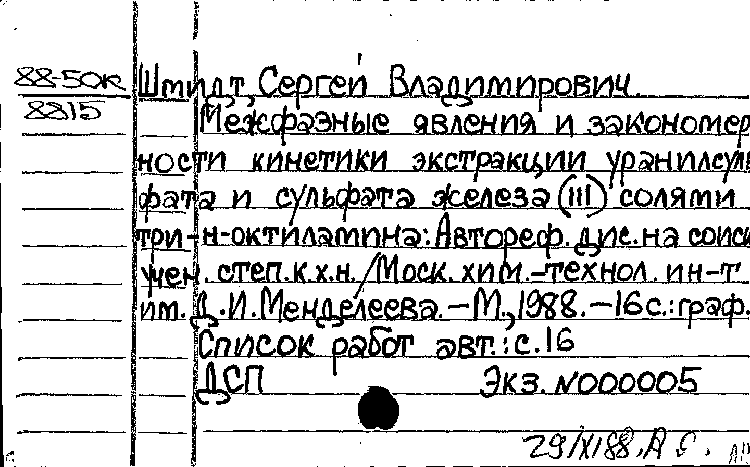 88-50к Шмидт, Сергей Владимирович.
8815
Межфазные явления и закономер
ности кинетики экстракции уранилсуль
фата и сульфата железа (III) солями
три-н-октиламина: Автореф. дис. на соиск
учен. степ. к.х.н. / Моск. хим.-технол. ин-т
им. Д.И. Менделеева. – М., 1988. – 16 с.: граф.
Список работ авт.: с. 16
ДСП Экз. N000005
29/XI88.